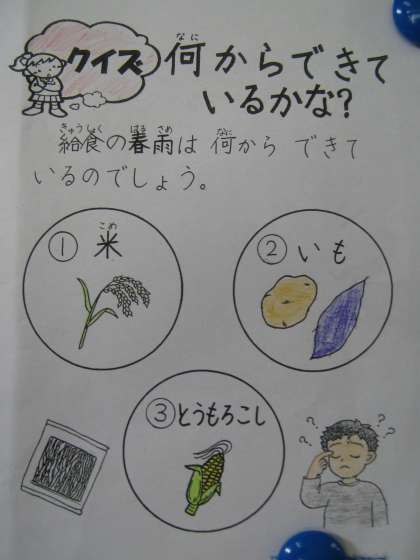 クイズ 何からできて
なに
いるかな?
給食の春雨は 何から できて
きゅうしょく はる さめ なに
いるのでしょう。
① 米
こめ
② いも
③ とうもろこし
? ? ? ?